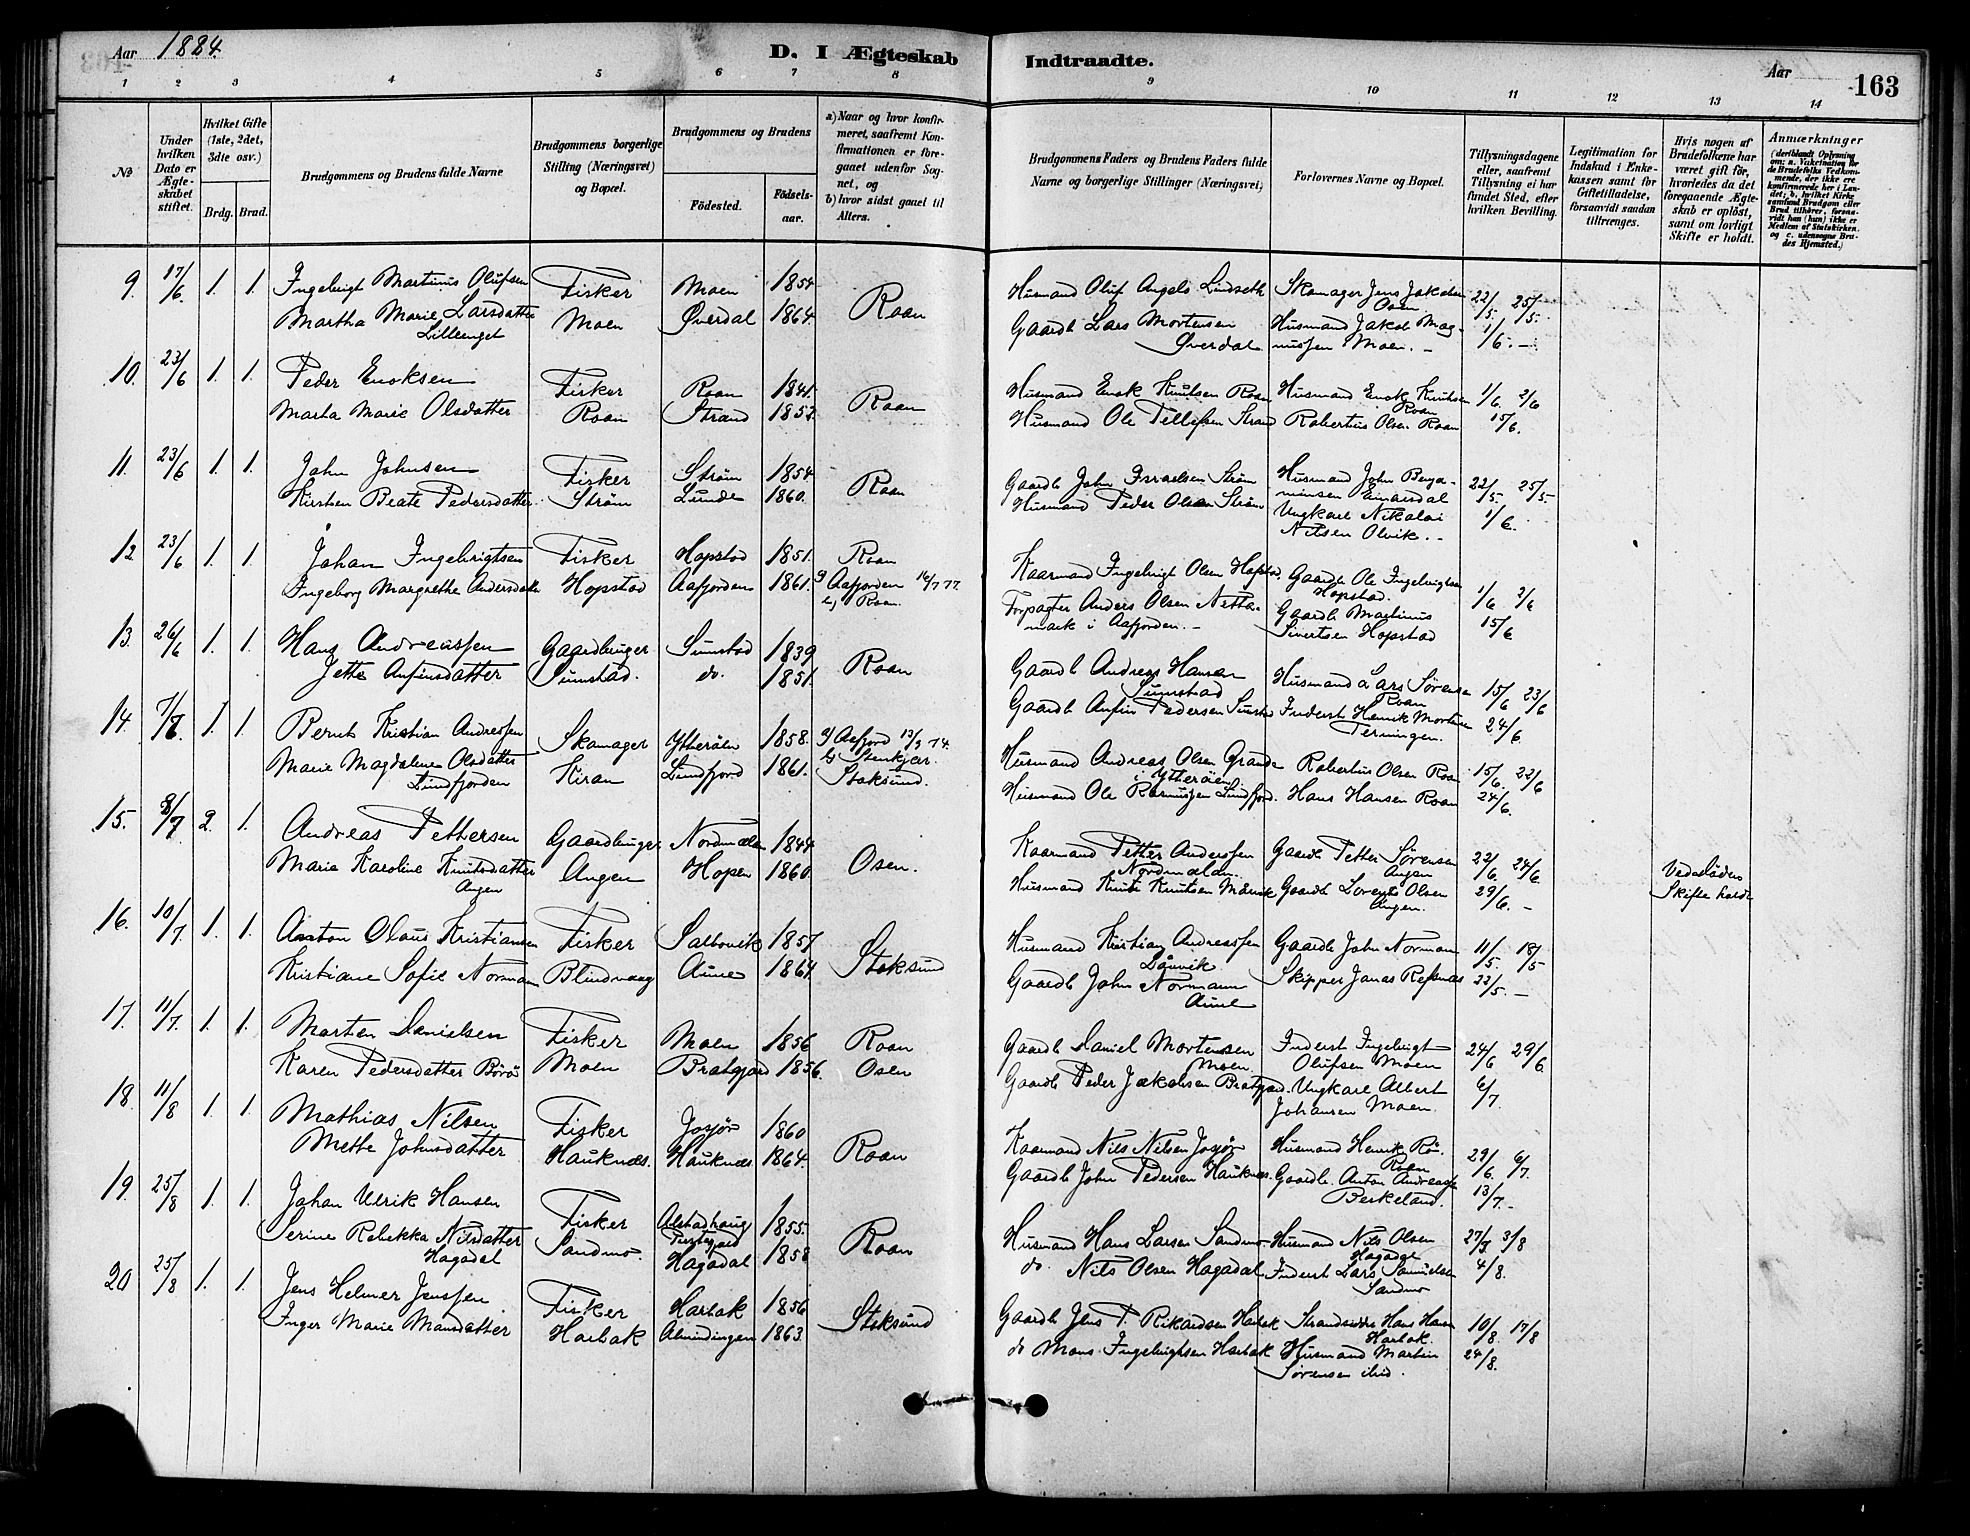 Aar 1884.
D. I Ægteskab Indtraadte.
Aar 163
1 2 3 4 5 6 7 8 9 10 11 12 13 14
№
Under hvilken Dato er Ægteskabet stiftet.
Hvilket Gifte (1ste, 2det, 3die osv.)
Brdg. Brud.
Brudgommens og Brudens fulde Navne
Brudgommens borgerlige Stilling (Næringsvei) og Bopæl.
Brudgommens og Brudens
Födested.
Födselsaar.
a) Naar og hvor konfirmeret, saafremt Konfirmationen er foregaaet udenfor Sognet, og
b) hvor sidst gaaet til Alters.
Brudgommens Faders og Brudens Faders fulde Navne og borgerlige Stillinger (Næringsvei)
Forlovernes Navne og Bopæl.
Tillysningsdagene eller, saafremt Tillysning ei har fundet Sted, efter hvilken Bevilling.
Legitimation for Indskud i Enkekassen samt for Giftetilladelse, forsaavidt saadan tiltrænges.
Hvis nogen af Brudefolkene har været gift för, hvorledes da det foregaaende Ægteskab er oplöst, samt om lovligt Skifte er holdt.
Anmærkninger
(deriblandt Oplysning om: a. Vakcination for de Brudefolks Vedkommende, der ikke ere konfirmerede her i Landet; b. hvilket Kirkesamfund Brudgom eller Brud tilhörer, forsaavidt han (hun) ikke er Medlem af Statskirken, og c. udensogns Brudes Hjemsted.)
9. 17/6 1. 1. Ingebrigt Martinus Olufsen Fisker Moen 1854 Roan Husmand Oluf Angels Lindseth Skomager Jens Jakobsen Osen 22/5. 25/5.
Martha Marie Larsdatter Lilleenget Moen Øverdal 1864. Gaardb Lars Mortensen Øverdal Husmand Jakob Magnussen Moen. 1/6.
10. 23/6 1. 1. Peder Enoksen Fisker Roan 1841. Roan Husmand Enok Knutsen Roan Husmand Enok Knutsen Roan 1/6. 2/6
Marta Marie Olsdatter Roan Strand 1852. Husmand Ole Tellefsen Strand Robertus Olsen Roan 15/6.
11. 23/6 1. 1. John Johnsen Fisker Strøm 1854 Roan Gaardb John Israelsen Strøm Husmand John Benjaminsen Einarsdal 22/5. 25/5
Kirsten Beate Pedersdatter Strøm Lunde 1860. Husmand Peder Olsen Strøm Ungkarl Nikolai Nilsen Olvik. 1/6.
12. 23/6 1. 1. Johan Ingebrigtsen Fisker Hopstad 1851. Roan Kaarmand Ingebrigt Olsen Hopstad. Gaardb Ole Ingebrigtsen Hopstad. 1/6 2/6
Ingeborg Margrethe Andersdatter Hopstad Aafjorden 1861. a) Aafjorden 16/7 77. b) Roan. Forpagter Anders Olsen Nettamark i Aafjorden. Gaardb Martinus Sivertsen Hopstad 15/6
13. 26/6 1. 1. Hans Andreassen Gaardbruger Sumstad 1839 Roan Gaardb Andreas Hansen Sumstad Husmand Lars Sørensen Roan 15/6 23/6
Jette Anfinsdatter Sumstad. do. 1851. Gaardb Anfin Pedersen Sumstad Inderst Henrik Mortensen Terningen. 24/6.
14. 7/7. 1. 1. Bernt Kristian Andreassen Skomager Ytterøen 1858. a) Aafjord 13/9 74. b) Stenkjær. Husmand Andreas Olsen Grande i Ytterøen Robertus Olsen Roan 15/6. 22/6
Marie Magdalene Olsdatter Lundfjorden Kiran Lundfjord 1861. Stoksund. Husmand Ole Rasmussen Lundfjord. Hans Hansen Roan 24/6.
15. 8/7 2. 1. Andreas Pettersen Gaardbruger Nordmælen 1844 Osen. Kaarmand Petter Anderssen Nordmælen Gaardb Petter Sørensen Angen 22/6. 24/6.
Marie Karoline Knutsdatter Angen Angen Hopen 1860. Husmand Knut Knutsen Gaardb Lorents Olsen Angen. 29/6.
Skifte holdt
16. 10/7. 1. 1. Anton Olaus Kristiansen Fisker Salbovik 1857 Stoksund Husmand Kristian Andreassen Gaardb John Norman 11/5. 18/5
Kristiane Sofie Normann Blindvaag Aune 1864. Gaardb John Normann Aune Skipper Jonas Refsnæs 22/5.
17. 11/7. 1. 1. Morten Danielsen Fisker Moen 1856 Roan Gaardb Daniel Mortensen Moen Inderst Ingebrigt Olufsen Moen 24/6 29/6
Karen Pedersdatter Børø Moen Bratgjord 1856. Osen Gaardb Peder Jakobsen Bratgjord. Ungkarl Albert Johansen Moen. 6/7.
18. 11/8 1. 1. Mathias Nilsen Fisker Josjør 1860 Roan Kaarmand Nils Nilsen Josjør Husmand Henrik Rö. Roan 29/6 6/7.
Mette Johnsdatter Hauknæs. Hauknæs. 1864. Gaardb John Pedersen Hauknes. Gaardb. Anton Andreas Berkeland. 13/7.
19. 25/8 1. 1. Johan Ulrik Hansen Fisker Alstadhaug 1855. Roan Husmand Hans Larsen Sandmo Husmand Nils Olsen Hagadal 27/7 3/8
Serine Rebekka Nilsdatter Hagadal Sandmo. Hagadal 1858 do. Nils Olsen Hagadal Inderst Lars Samuelsen Sandmo 4/8.
20 25/8 1. 1. Jens Helmer Jenssen Fisker Harbak 1856 Stoksund Gaardb Jens P. Rikardsen Harbak Strandsidder Hans Hansen Harbak. 10/8. 17/8
Inger Marie Monsdatter Harbak Almindingen 1863. do Mons Ingebrigtsen Harbak Husmand Martin Sørensen ibid. 24/8.